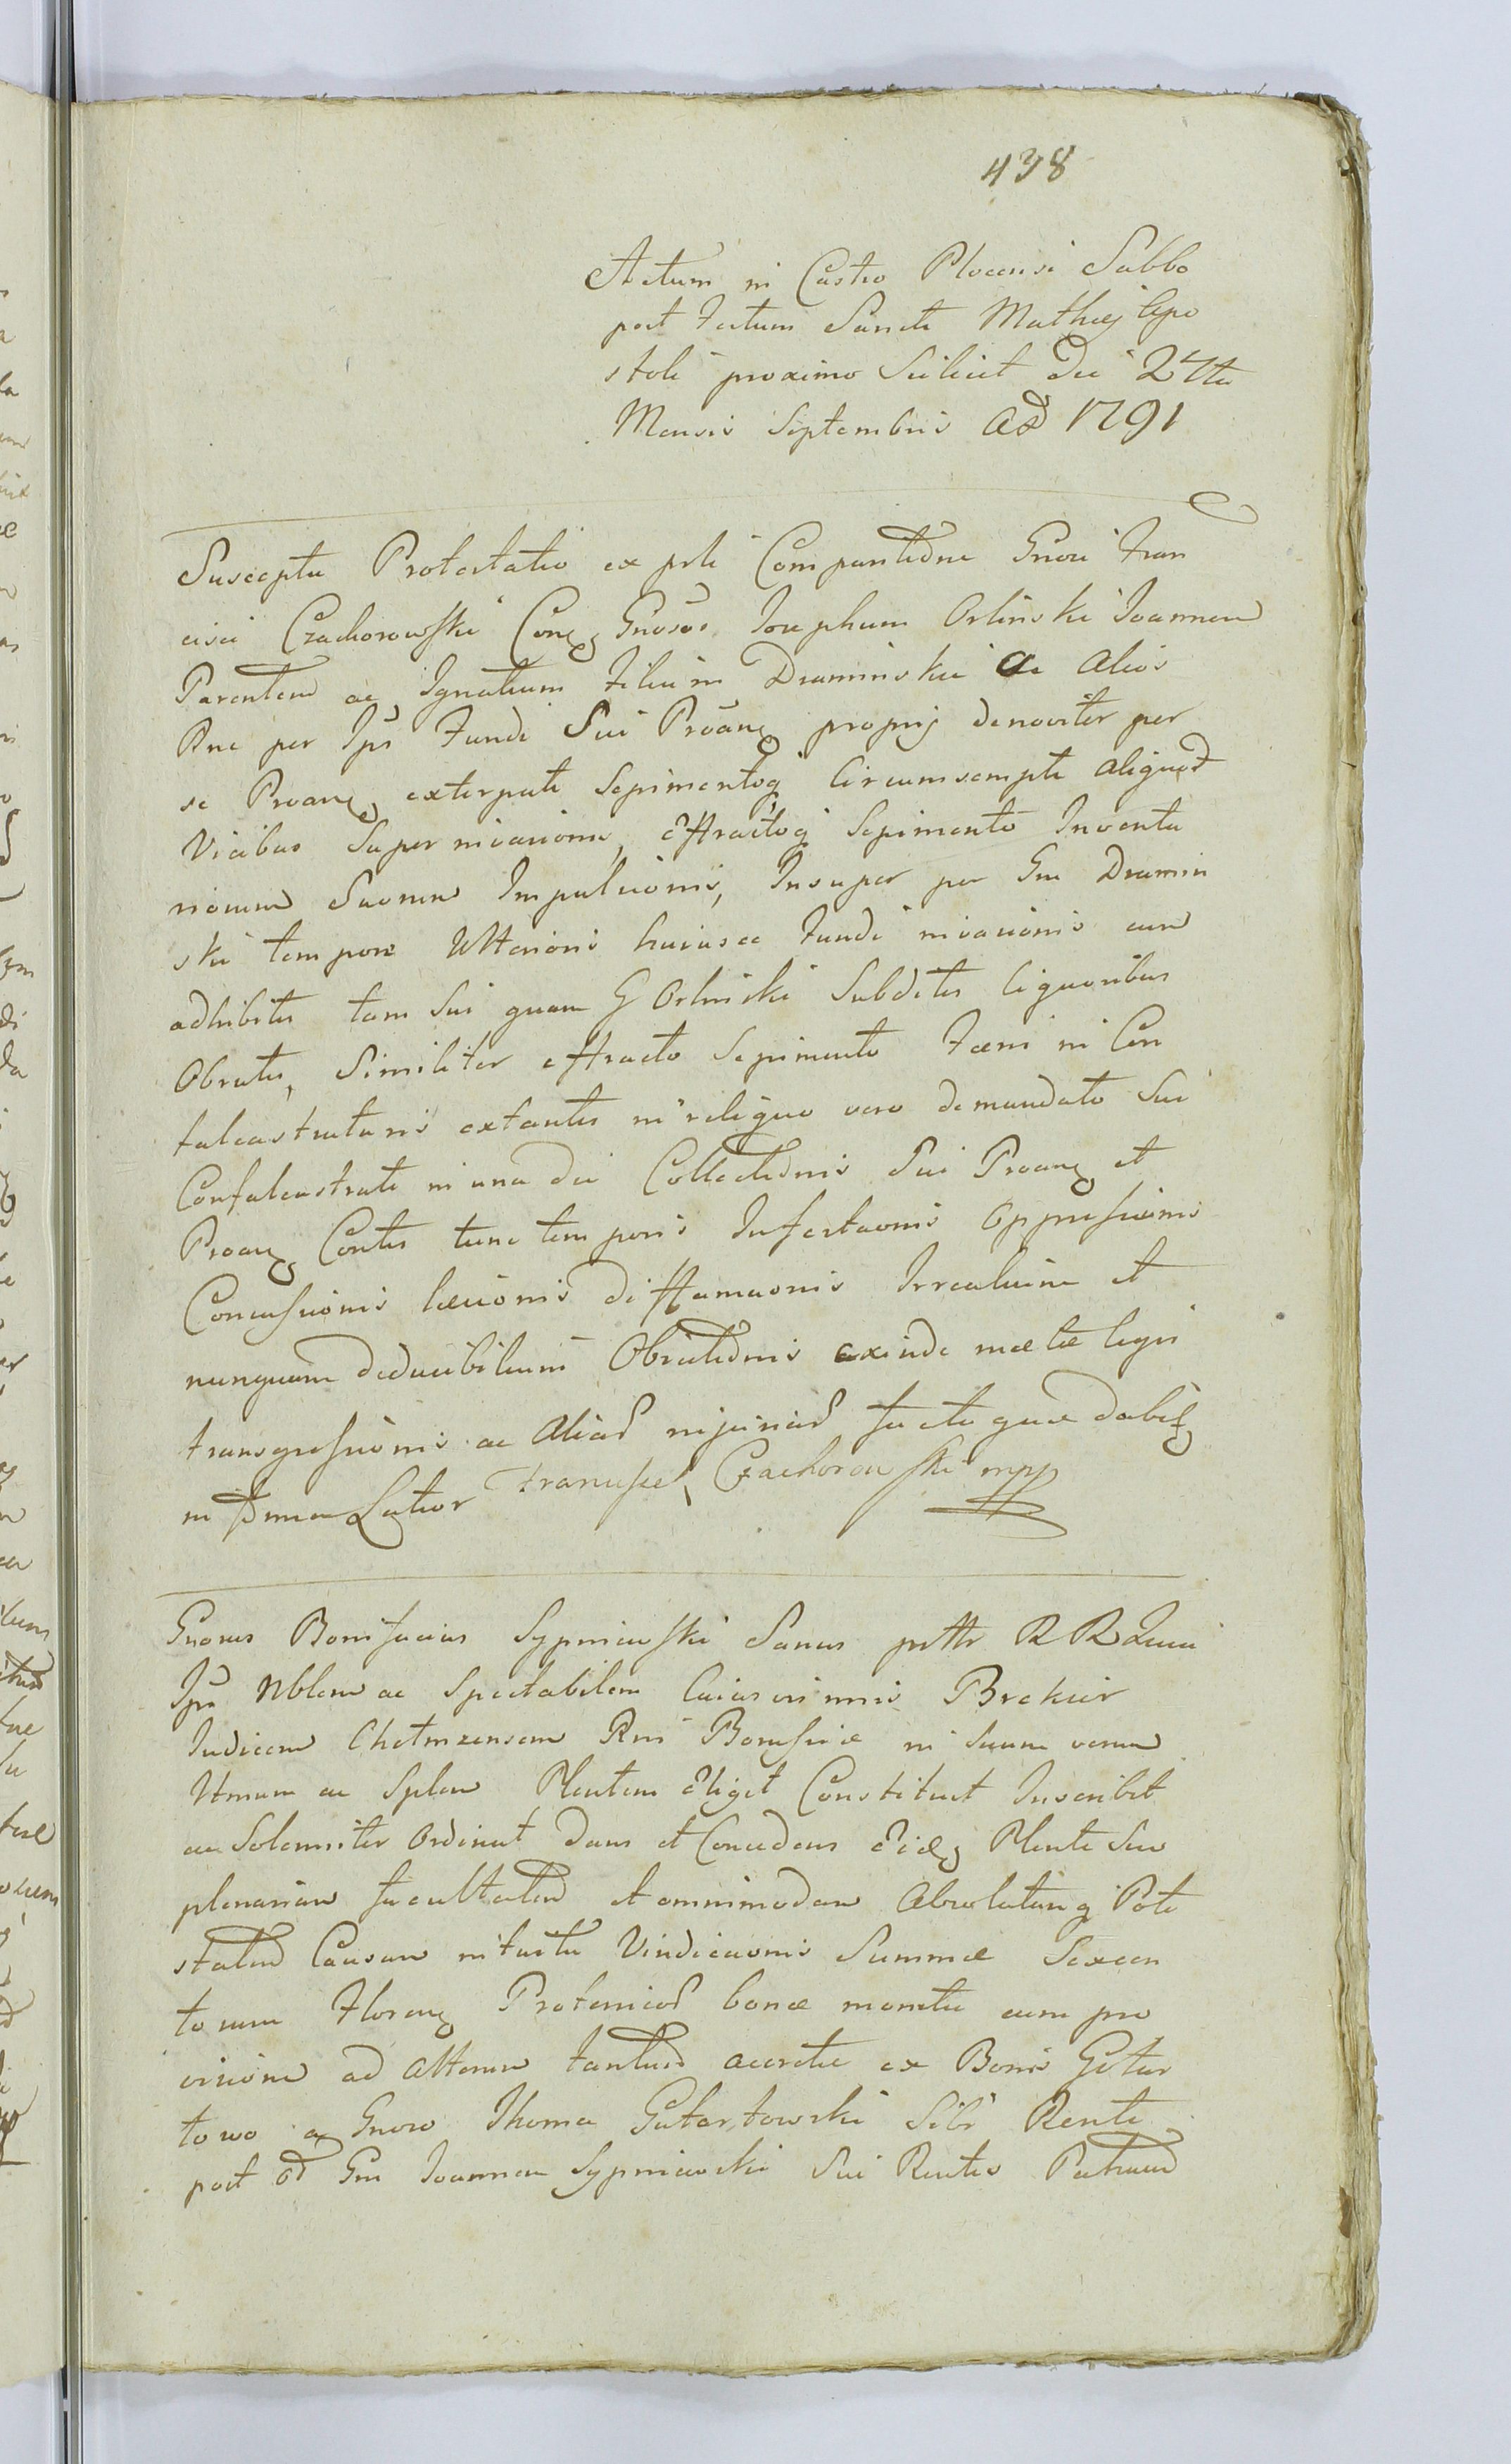 438
Actum in Castro Plocensi Sabbo
post Festum Sancti Mathęj Apo
stoli proximo Scilicet Die 24ta
Mensis Septembris AD 1791
Suscepta Protestatio ex prte Comparitione Gnosi Fran
cisci Czachorowski Con Gnosos Josephum Orlinski Joannem
Parentem ac Ignatium Filium Draminskie ac Alios
Rne per Ips Fundi Sui Proan proprij denoviter per
se Proan exterpati Sepimentoq Circumsempti aliquot
Vicibus Superinvasione, effractoq Sepimento Inventa
riorum Suorum Impulsionis, Insuper per Gm Dramin
ski tempore Ulterioris huiusce Fundi invasionis cum
adhibitis tam Sui quam G Orlinski Subditis liquoribus
Obrutis, Similiter effracto Sepimento Fœni in Con
falcastraturis extantis in reliquo vero de mandato Sui
Confalcastrati in una die Collectionis Sui Proan et
Proan Contis tunc temporis Infestaonis Oppressionis
Concussionis læsionis diffamaonis Irrealium et
nunquam deducibilium Obiectionis exinde metæ legis
transgressionis ac Aliar injuriar facta quæ dabit
in Latior Franciszek Czachorowski mpp
Gnosus Bonifacius Sypniewski Sanus prttr R R Quia
Ips Nblem ac Spectabilem Brekier
Judicem Chełmzensem Rni Borussiæ in Suum verum
Ltmum ac Splem Plentem Eliget Constituit Inscribit
ac Solemniter Ordinat Dans et Concedens Plenti Suo
plenariam facultatem et omnimodam Absolutamq Pote
statem Causam intuitu Vindicaonis Summæ Sexcen
torum Floren Protenicar bonæ monetæ cum pro
visione ad Alterum tantum accretæ ex Bonis Gutar
towo a Gnoso Thoma Gutartowski Sibi Renti
post od Gm Joannem Sypniewski Sui Rentis Patruum